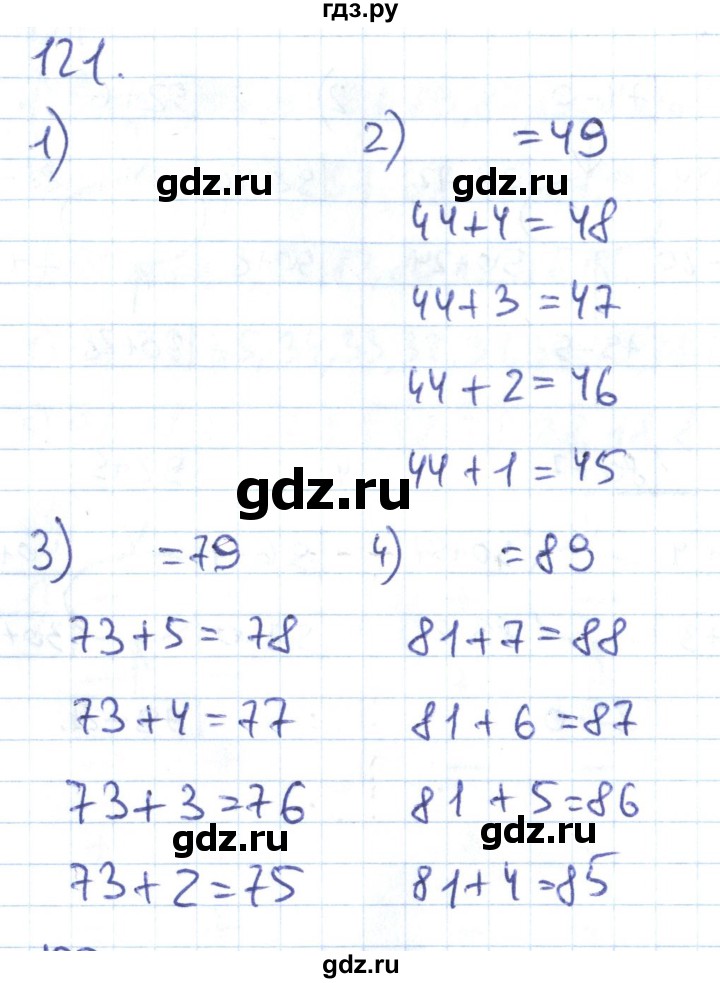 гдз.ру
121.
1)
2) =49
gdz.ru
gdz.ru
44+4=48
44+3=47
44+2=46
44+1=45
gdz.ru
3) =79
73+5=78
73+4=77
73+3=76
gdz.ru
73+2=75
4) =89
81+7=88
81+6=87
81+5=86
gdz.ru
81+4=85
gdz.ru